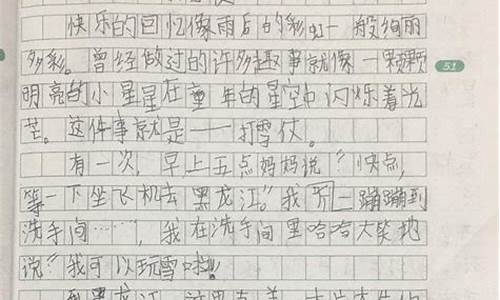 快乐的回忆像雨后的彩虹一般绚丽
多彩。曾经做过的许多趣事就像一颗颗
51
明亮的小星星在童年的星空中闪烁着光
芒。这件事就是——打雪仗。
有一次,早上五点妈妈说"快点,
等一下坐飞机去黑龙江。"我一蹦蹦到
洗手间……,我在洗手间里哈哈大笑地
说"我可以玩雪啦!